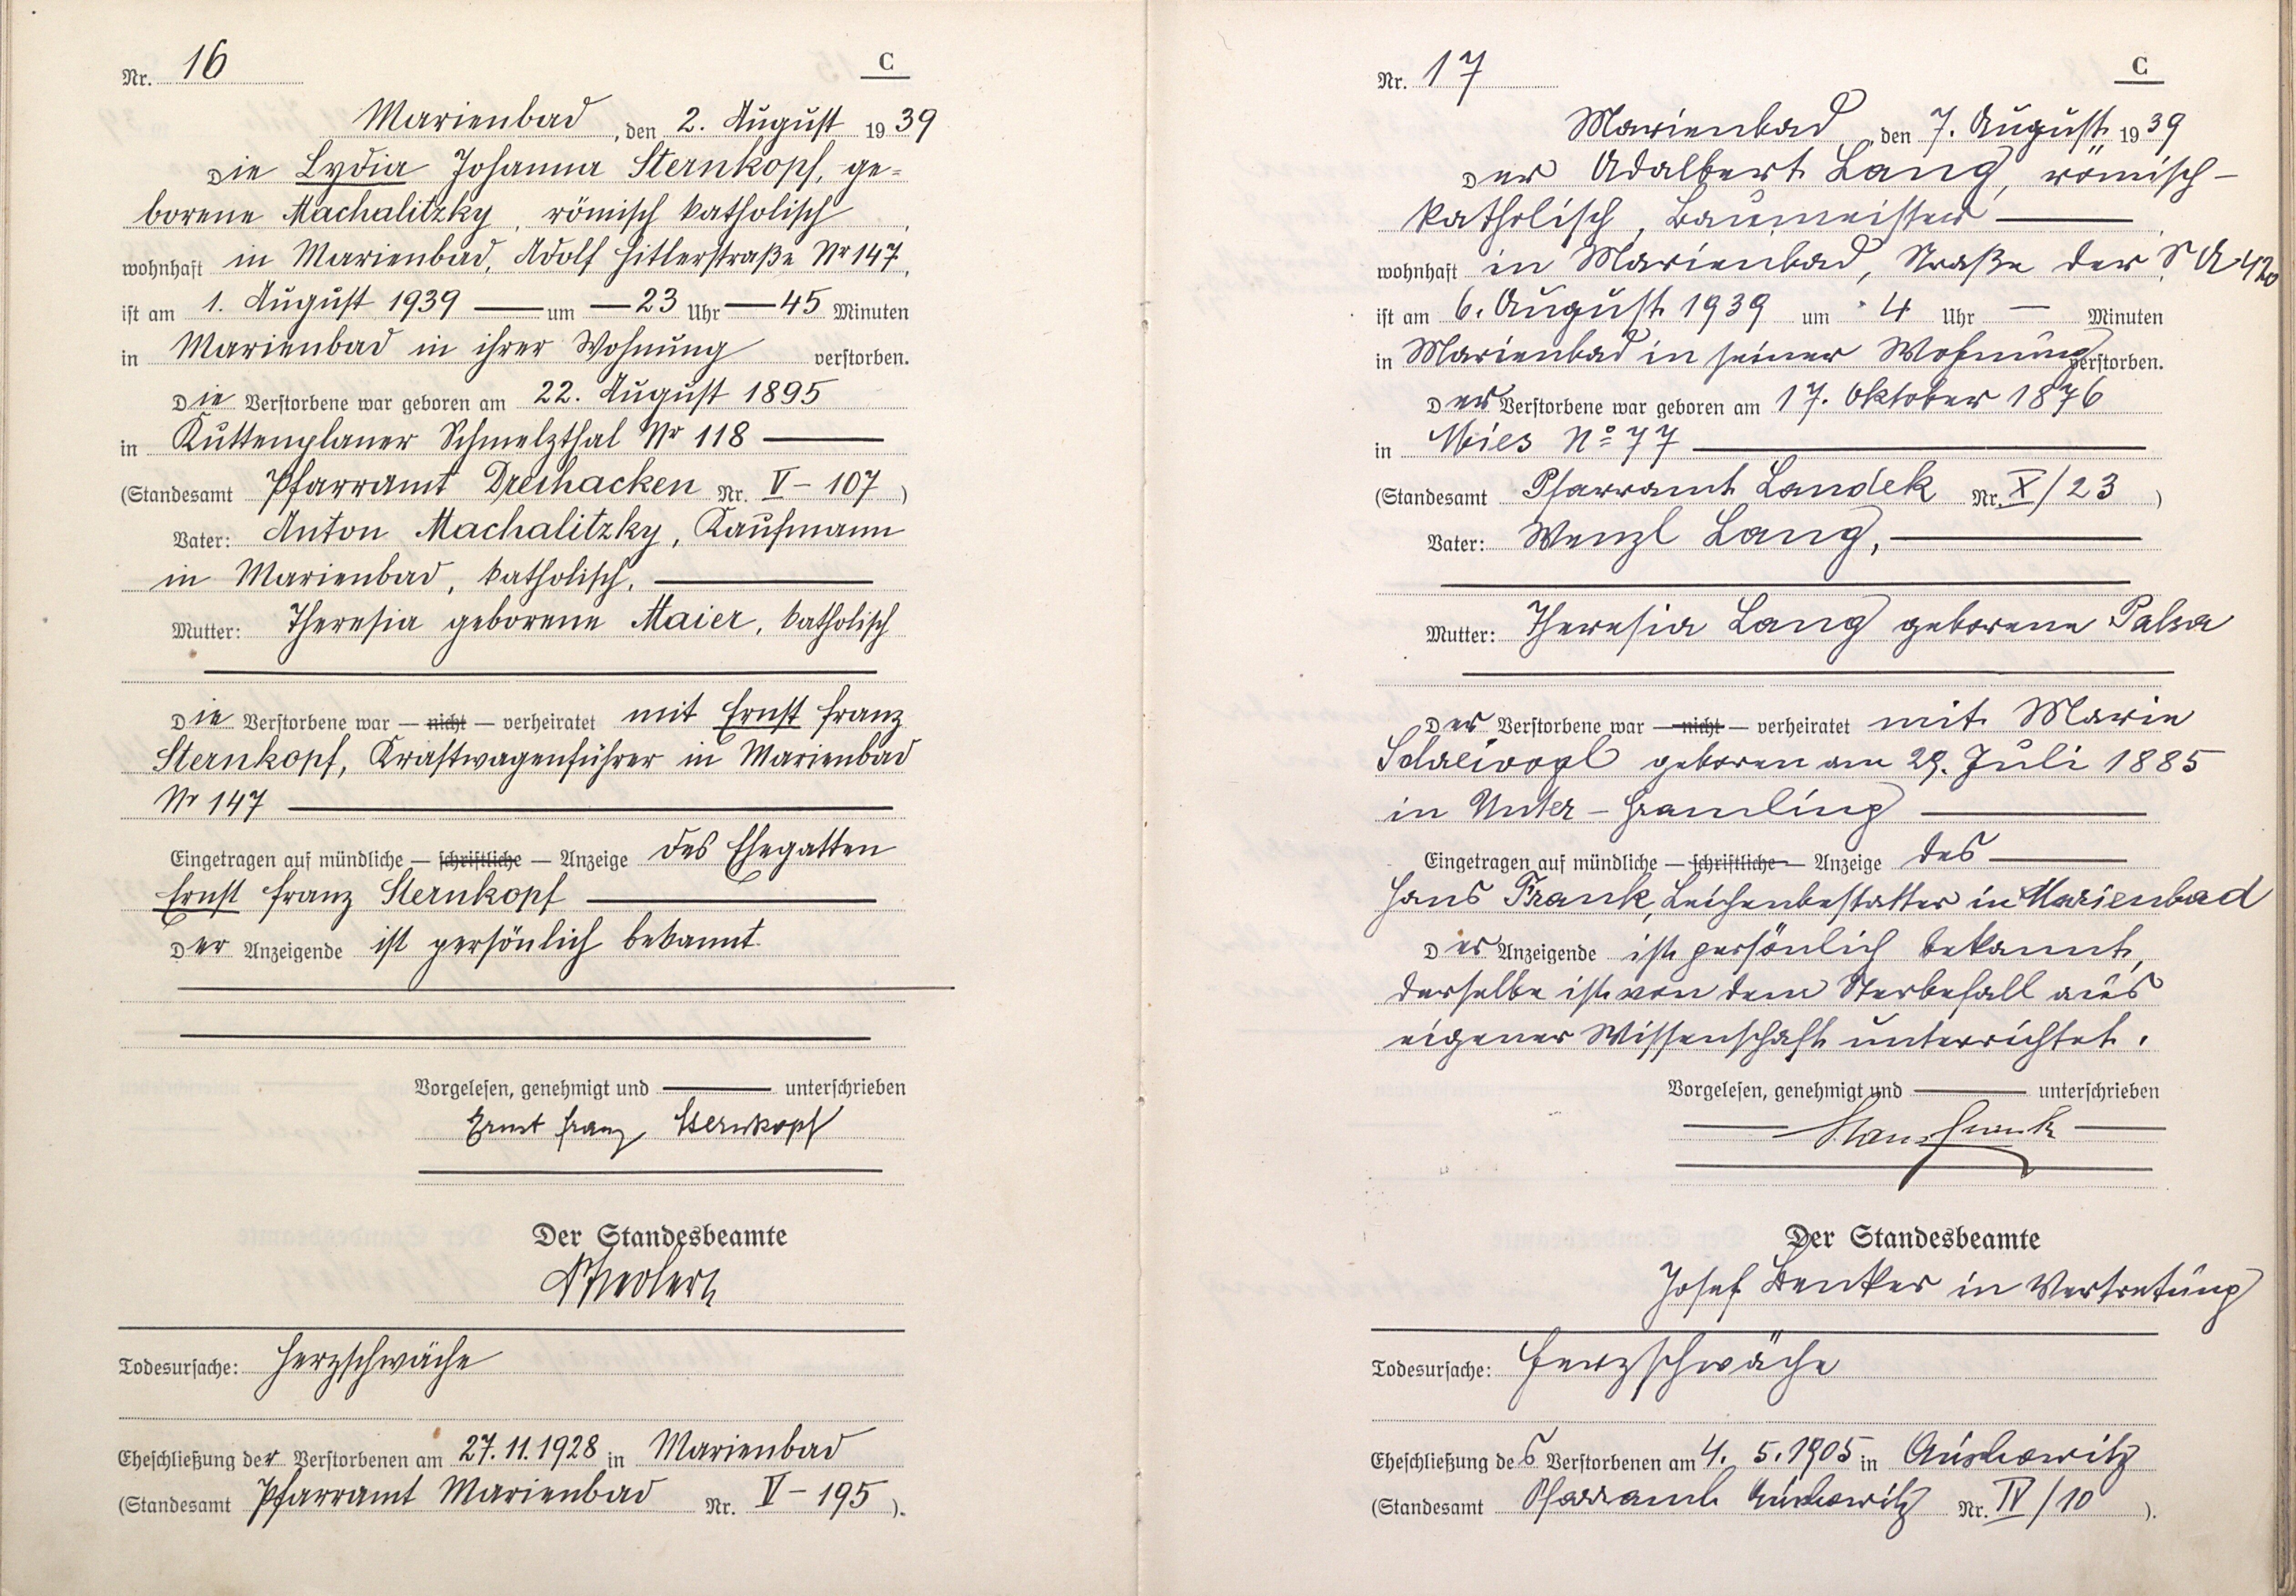 Nr. 16
C
Marienbad, den 2. August 1939
Die Lydia Johanna Sternkopf, ge=
borene Machalitzky, römisch katholisch,
wohnhaft in Marienbad, Adolf Hitlerstraße Nr 147,
ist am 1. August 1939 — um — 23 Uhr — 45 Minuten
in Marienbad in ihrer Wohnung verstorben.
Die Verstorbene war geboren am 22. August 1895
in Kuttenplaner Schmelzthal Nr 118 —
(Standesamt Pfarramt Dreihacken Nr. V - 107)
Vater: Anton Machalitzky, Kaufmann
in Marienbad, katholisch. —
Mutter: Theresia geborene Maier, katholisch
Die Verstorbene war — nicht — verheiratet mit Ernst Franz
Sternkopf, Kraftwagenführer in Marienbad
Nr 147 —
Eingetragen auf mündliche — schriftliche — Anzeige des Ehegatten
Ernst Franz Sternkopf —
Der Anzeigende ist persönlich bekannt.
Vorgelesen, genehmigt und — unterschrieben
Ernst Franz Sternkopf
Der Standesbeamte
Todesursache: Herzschwäche
Eheschließung der Verstorbenen am 27.11.1928 in Marienbad
(Standesamt Pfarramt Marienbad Nr. V - 195).
Nr. 17
C
Marienbad, den 7. August 1939
Der Adalbert Lang, römisch-
katholisch, Baumeister —,
wohnhaft in Marienbad, Straße der S A 420
ist am 6. August 1939 um 4 Uhr — Minuten
in Marienbad in seiner Wohnung verstorben.
Der Verstorbene war geboren am 17. Oktober 1876
in Mies No 77 —
(Standesamt Pfarramt Landek Nr. X/23)
Vater: Wenzl Lang, —
Mutter: Theresia Lang geborene Palsa
Der Verstorbene war — nicht — verheiratet mit Marie
geboren am 29. Juli 1885
in Unter-Gramling —
Eingetragen auf mündliche — schriftliche — Anzeige des —
Hans Frank, Leichenbestatter in Marienbad
Der Anzeigende ist persönlich bekannt,
derselbe ist von dem Sterbefall aus
eigener Wissenschaft unterrichtet.
Vorgelesen, genehmigt und — unterschrieben
— Hans Frank —
Der Standesbeamte
Josef Benker in Vertretung
Todesursache: Herzschwäche
Eheschließung des Verstorbenen am 4. 5. 1905 in Auschowitz
(Standesamt Pfarramt Auschowitz Nr. IV/10).